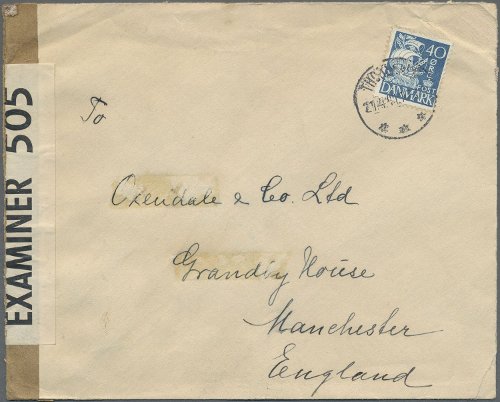 EXAMINER 505
40
ØRE
POST
DANMARK
To
Oxendale & Co. Ltd
Grandiy House
Manchester
England